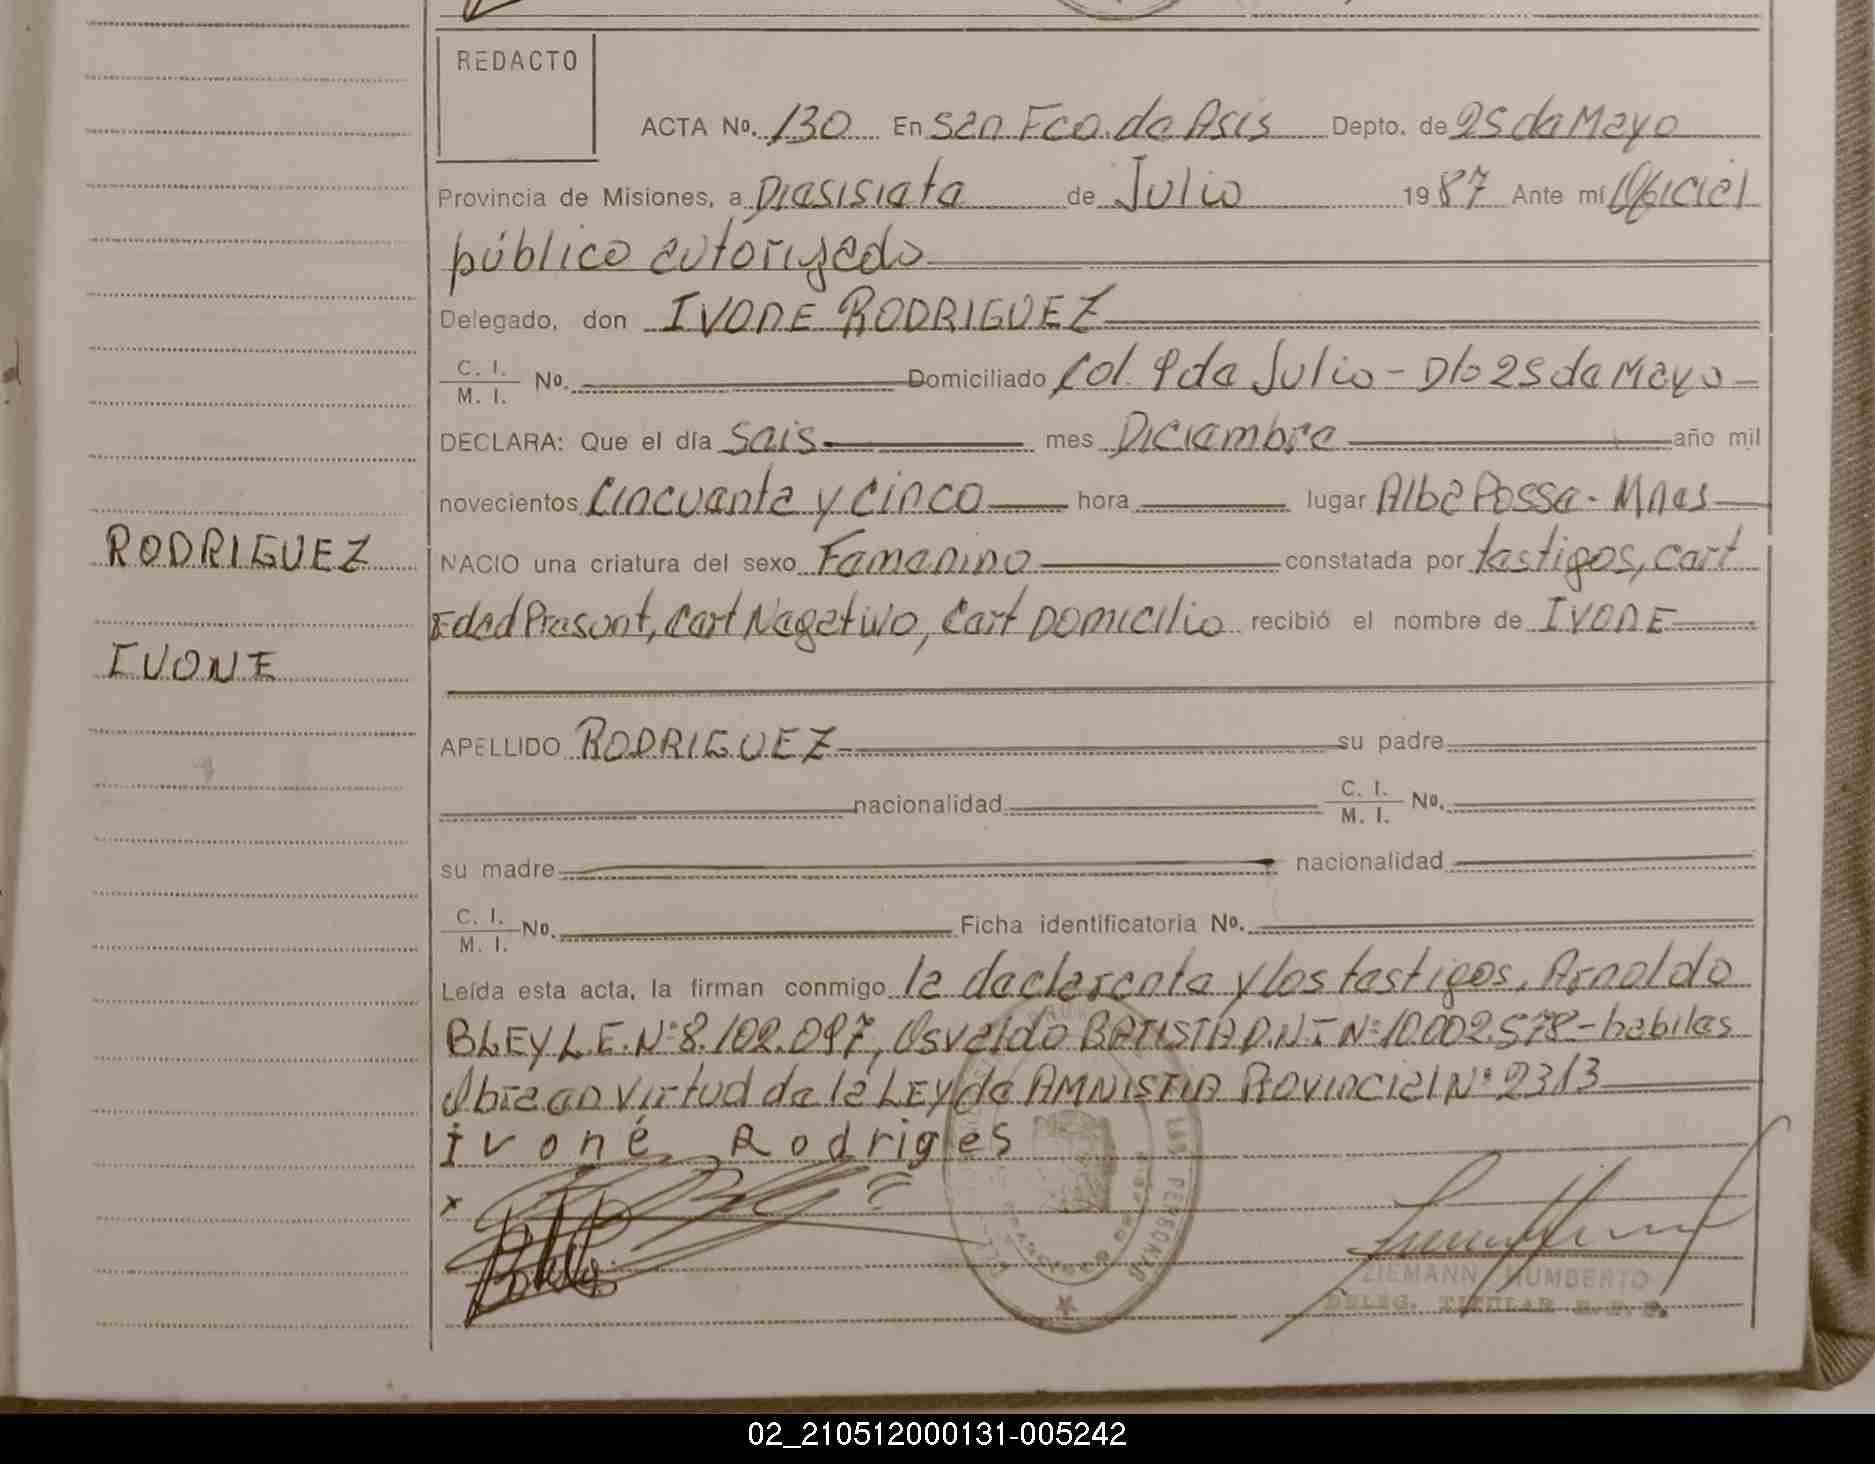 REDACTO
ACTA No. 130 En San Fco. de Asis Depto. de 25 de Mayo
Provincia de Misiones, a Diesisiete de Julio 1987 Ante mí Oficial
público autorizado
Delegado, don IVONE RODRIGUEZ
C. I.
M. I. No. Domiciliado Col. 9 de Julio - Dto 25 de Mayo -
DECLARA: Que el día seis mes Diciembre año mil
novecientos Cincuenta y cinco hora lugar Alba Possa - Mnes
RODRIGUEZ
NACIO una criatura del sexo Femenino constatada por testigos, cert
Edad Presunt, Cert Negativo, Cert Domicilio recibió el nombre de IVONE
IVONE
APELLIDO RODRIGUEZ su padre
nacionalidad C. I.
M. I. No.
su madre nacionalidad
C. I.
M. I. No. Ficha identificatoria No.
Leída esta acta, la firman conmigo la declarante y los testigos, Arnoldo
BLEY L.E. Nº 8.102.097, Osvaldo BATISTA D.N.I Nº 10.002.578 - habiles
Obra en virtud de la LEY de AMNISTIA Provincial Nº 2313
ivoné Rodriges
x
LAS PERSONAS
ZIEMANN HUMBERTO
DELEG. TITULAR R.P.P.
02_210512000131-005242